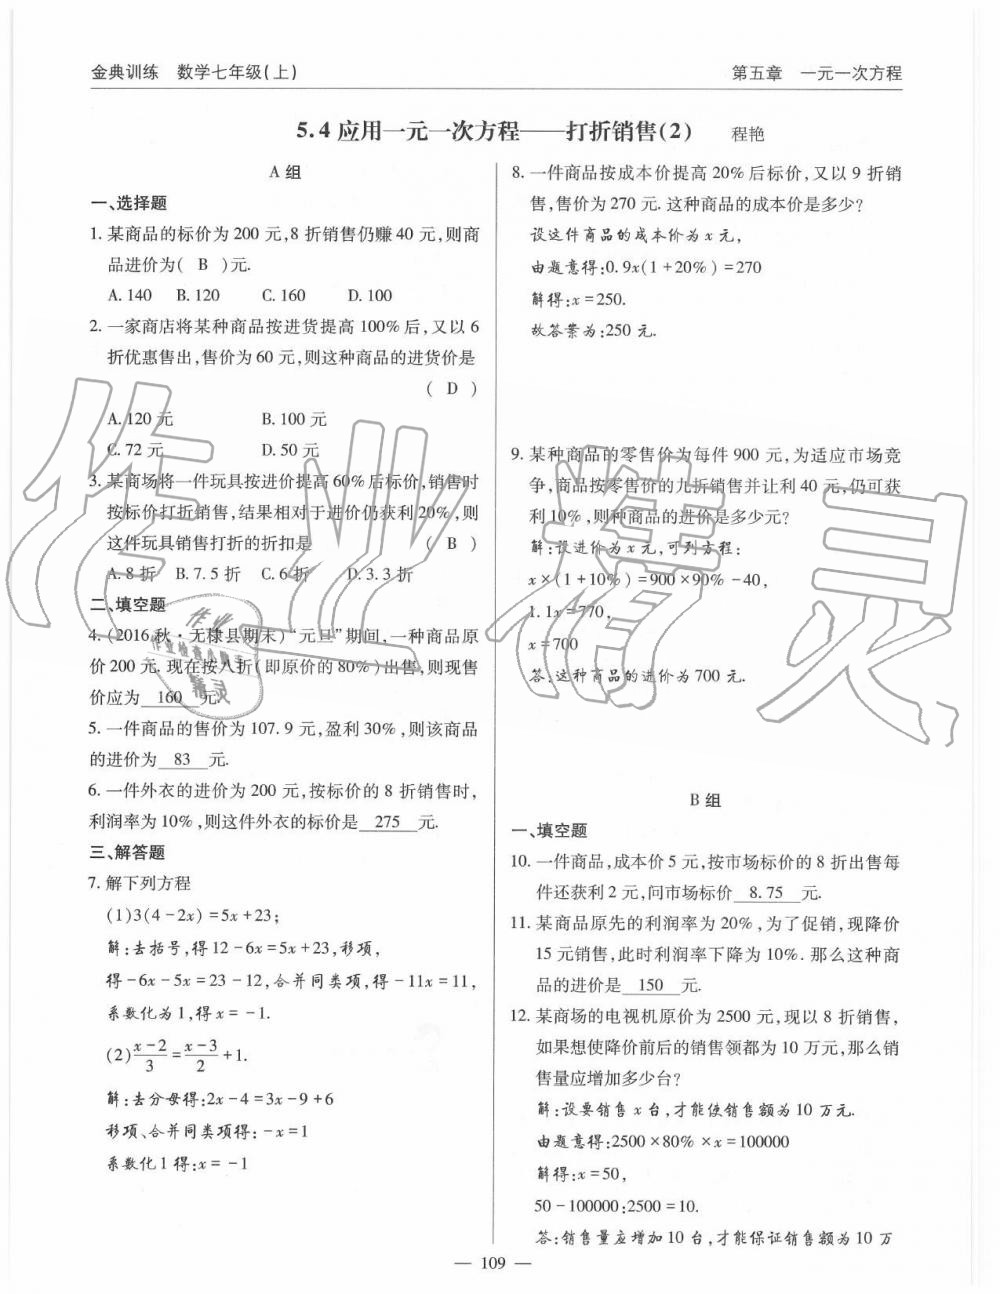 金典训练 数学七年级(上)
第五章 一元一次方程
5.4 应用一元一次方程——打折销售(2) 程艳
A 组
一、选择题
1. 某商品的标价为 200 元,8 折销售仍赚 40 元,则商
品进价为( B )元.
A. 140 B. 120 C. 160 D. 100
2. 一家商店将某种商品按进货提高 100% 后,又以 6
折优惠售出,售价为 60 元,则这种商品的进货价是
( D )
A. 120 元 B. 100 元
C. 72 元 D. 50 元
3. 某商场将一件玩具按进价提高 60% 后标价,销售时
按标价打折销售,结果相对于进价仍获利 20%,则
这件玩具销售打折的折扣是 ( B )
A. 8 折 B. 7.5 折 C. 6 折 D. 3.3 折
二、填空题
4. (2016 秋·无棣县期末)“元旦”期间,一种商品原
价 200 元. 现在按八折(即原价的 80%)出售,则现售
价应为 160 元.
5. 一件商品的售价为 107.9 元,盈利 30%,则该商品
的进价为 83 元.
6. 一件外衣的进价为 200 元,按标价的 8 折销售时,
利润率为 10%,则这件外衣的标价是 275 元.
三、解答题
7. 解下列方程
(1)3(4-2x)=5x+23;
解:去括号,得 12-6x=5x+23,移项,
得-6x-5x=23-12,合并同类项,得-11x=11,
系数化为 1,得 x=-1.
(2)\frac{x-2}{3}=\frac{x-3}{2}+1.
解:去分母得:2x-4=3x-9+6
移项、合并同类项得:-x=1
系数化 1 得:x=-1
8. 一件商品按成本价提高 20% 后标价,又以 9 折销
售,售价为 270 元. 这种商品的成本价是多少?
设这件商品的成本价为 x 元,
由题意得:0.9x(1+20%)=270
解得:x=250.
故答案为:250 元.
9. 某种商品的零售价为每件 900 元,为适应市场竞
争,商品按零售价的九折销售并让利 40 元,仍可获
利 10%,则种商品的进价是多少元?
解:设进价为 x 元,可列方程:
x×(1+10%)=900×90%-40,
1.1x=770,
x=700
答:这种商品的进价为 700 元.
B 组
一、填空题
10. 一件商品,成本价 5 元,按市场标价的 8 折出售每
件还获利 2 元,问市场标价 8.75 元.
11. 某商品原先的利润率为 20%,为了促销,现降价
15 元销售,此时利润率下降为 10%. 那么这种商
品的进价是 150 元.
12. 某商场的电视机原价为 2500 元,现以 8 折销售,
如果想使降价前后的销售领都为 10 万元,那么销
售量应增加多少台?
解:设要销售 x 台,才能使销售额为 10 万元.
由题意得:2500×80%×x=100000
解得:x=50,
50-100000:2500=10.
答:销售量应增加 10 台,才能保证销售额为 10 万
— 109 —
作业精灵
作业
作业检查小助手
精灵